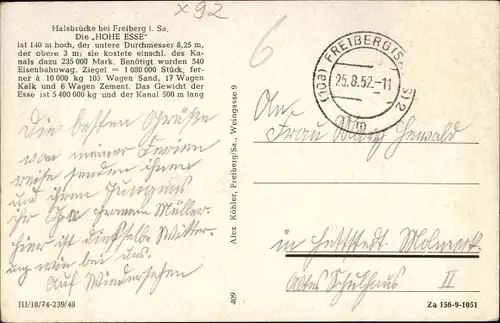 x 92
Halsbrücke bei Freiberg i. Sa.
Die „HOHE ESSE"
ist 140 m hoch, der untere Durchmesser 8,25 m,
der obere 3 m; sie kostete einschl. des Ka-
nals dazu 235 000 Mark. Benötigt wurden 540
Eisenbahnwag. Ziegel = 1 080 000 Stück, fer-
ner à 10 000 kg 103 Wagen Sand, 17 Wagen
Kalk und 6 Wagen Zement. Das Gewicht der
Esse ist 5 400 000 kg und der Kanal 500 m lang
Die besten Grüße
von meiner Ferien
reise senden ihnen
und ihren Jungens
ihr Frau Müller.
hier ist dieselbe Witter-
ung wie bei uns.
Auf Wiedersehen
III/18/74-239/48
Alex Köhler, Freiberg/Sa., Weingasse 9
409
6
(10a) FREIBERG (SACHS) 2
25.8.52.-11
m
An
Frau
in Hettstedt-Molmeck
Altes Schulhaus II
Za 156-9-1051